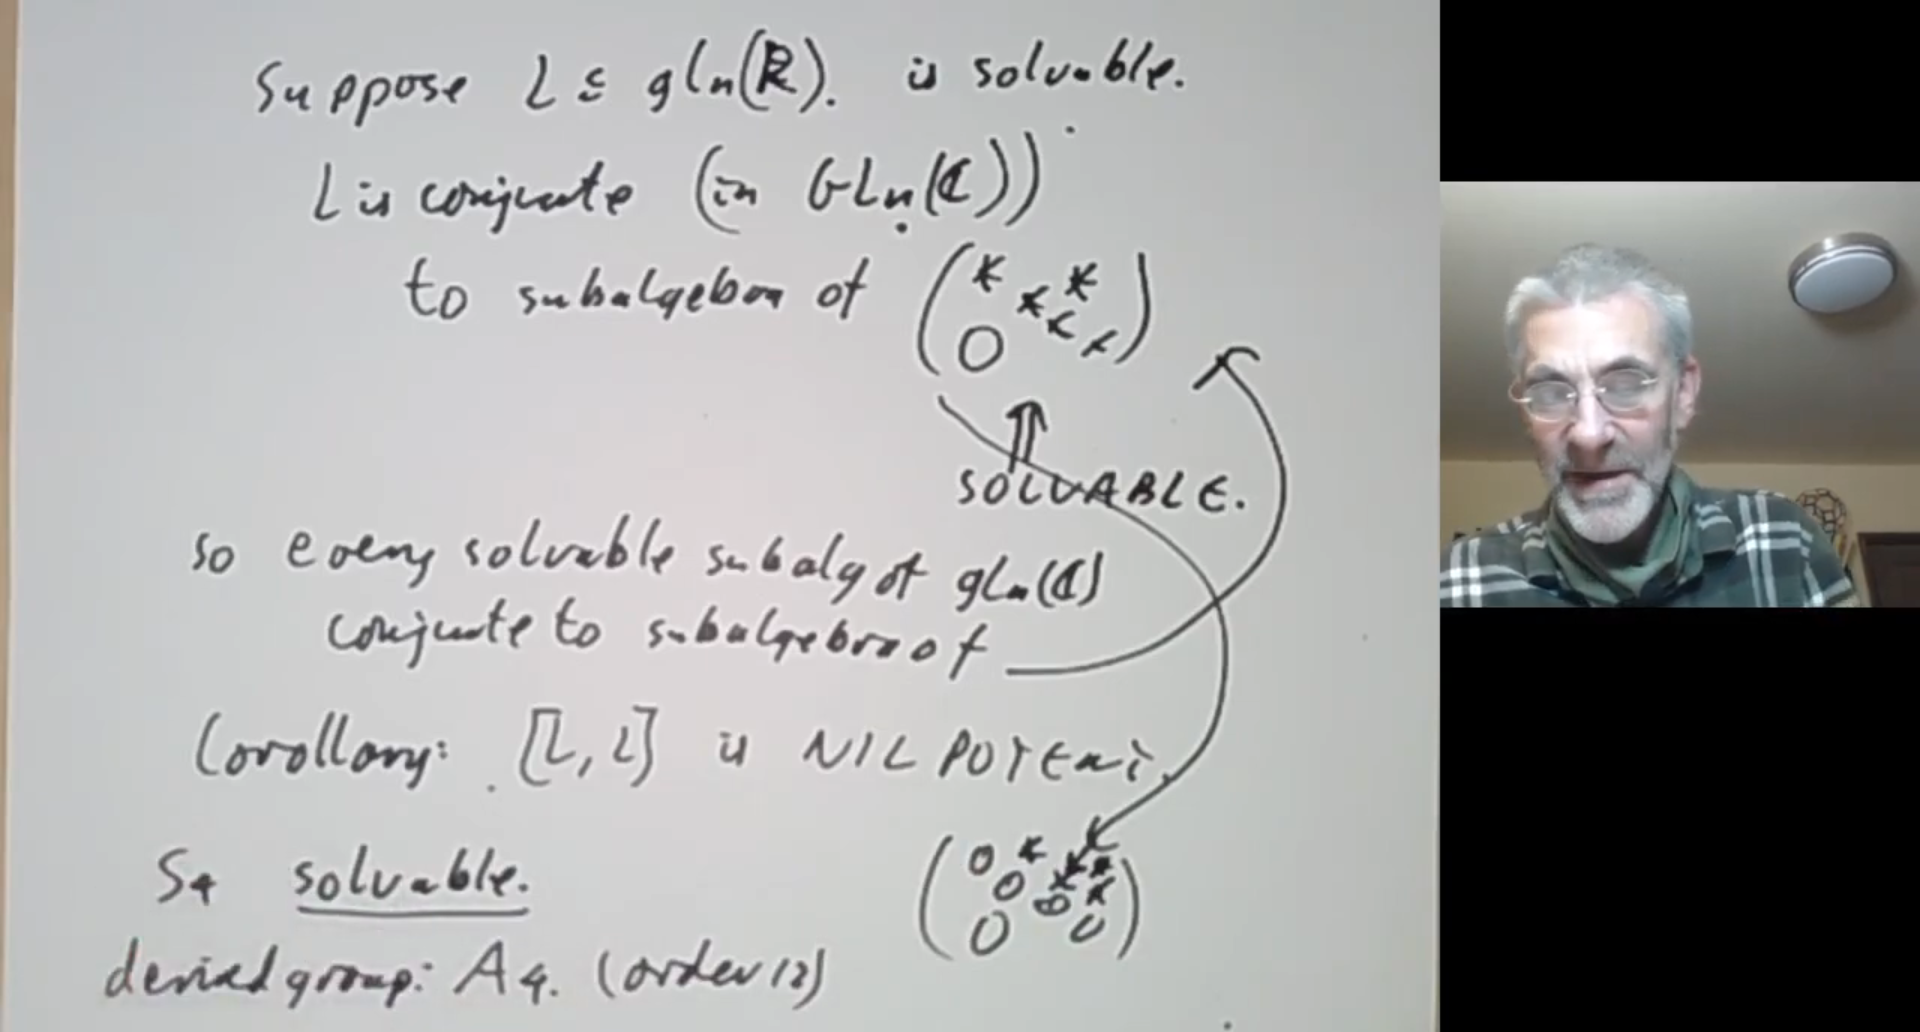 Suppose L ⊆ gln(R). is solvable.
L is conjugate (in GLn(C))
to subalgebra of (* * * * * 0)
SOLVABLE.
so every solvable subalg of gLn(C)
conjugate to subalgebra of
Corollary: [L, L] is NILPOTENT.
S4 solvable.
(0 * * * 0 * * 0 0 0)
derived group: A4. (order 12)